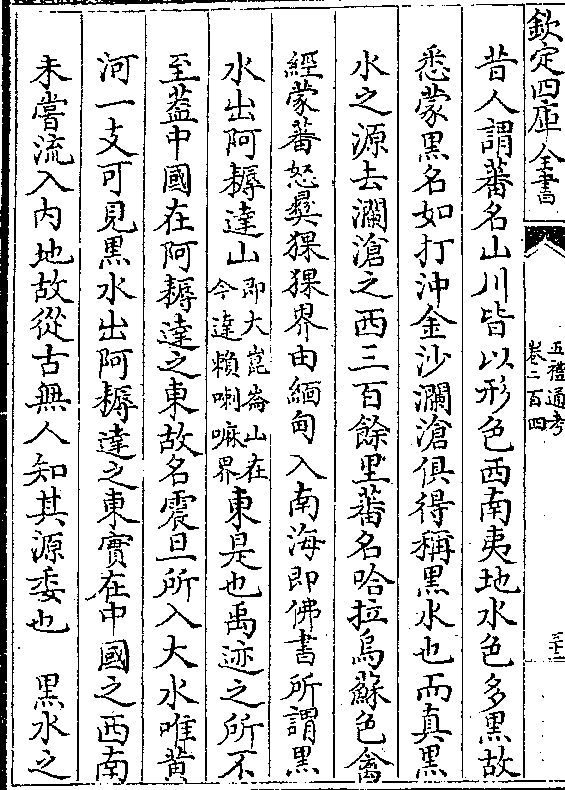 欽定四庫全書
五禮通考
卷二百四
三十二
昔人謂蕃名山川皆以形色西南夷地水色多黑故
悉蒙黑名如打沖金沙瀾滄俱得稱黑水也而真黑
水之源去瀾滄之西三百餘里蕃名哈拉烏蘇色禽
經蒙蕃怒彝猓猓界由緬甸入南海即佛書所謂黑
水出阿耨達山即大崑崙山在今達賴喇嘛界東是也禹迹之所不
至葢中國在阿耨達之東故名震旦所入大水唯黄
河一支可見黑水出阿耨達之東實在中國之西南
未嘗流入内地故從古無人知其源委也　黑水之